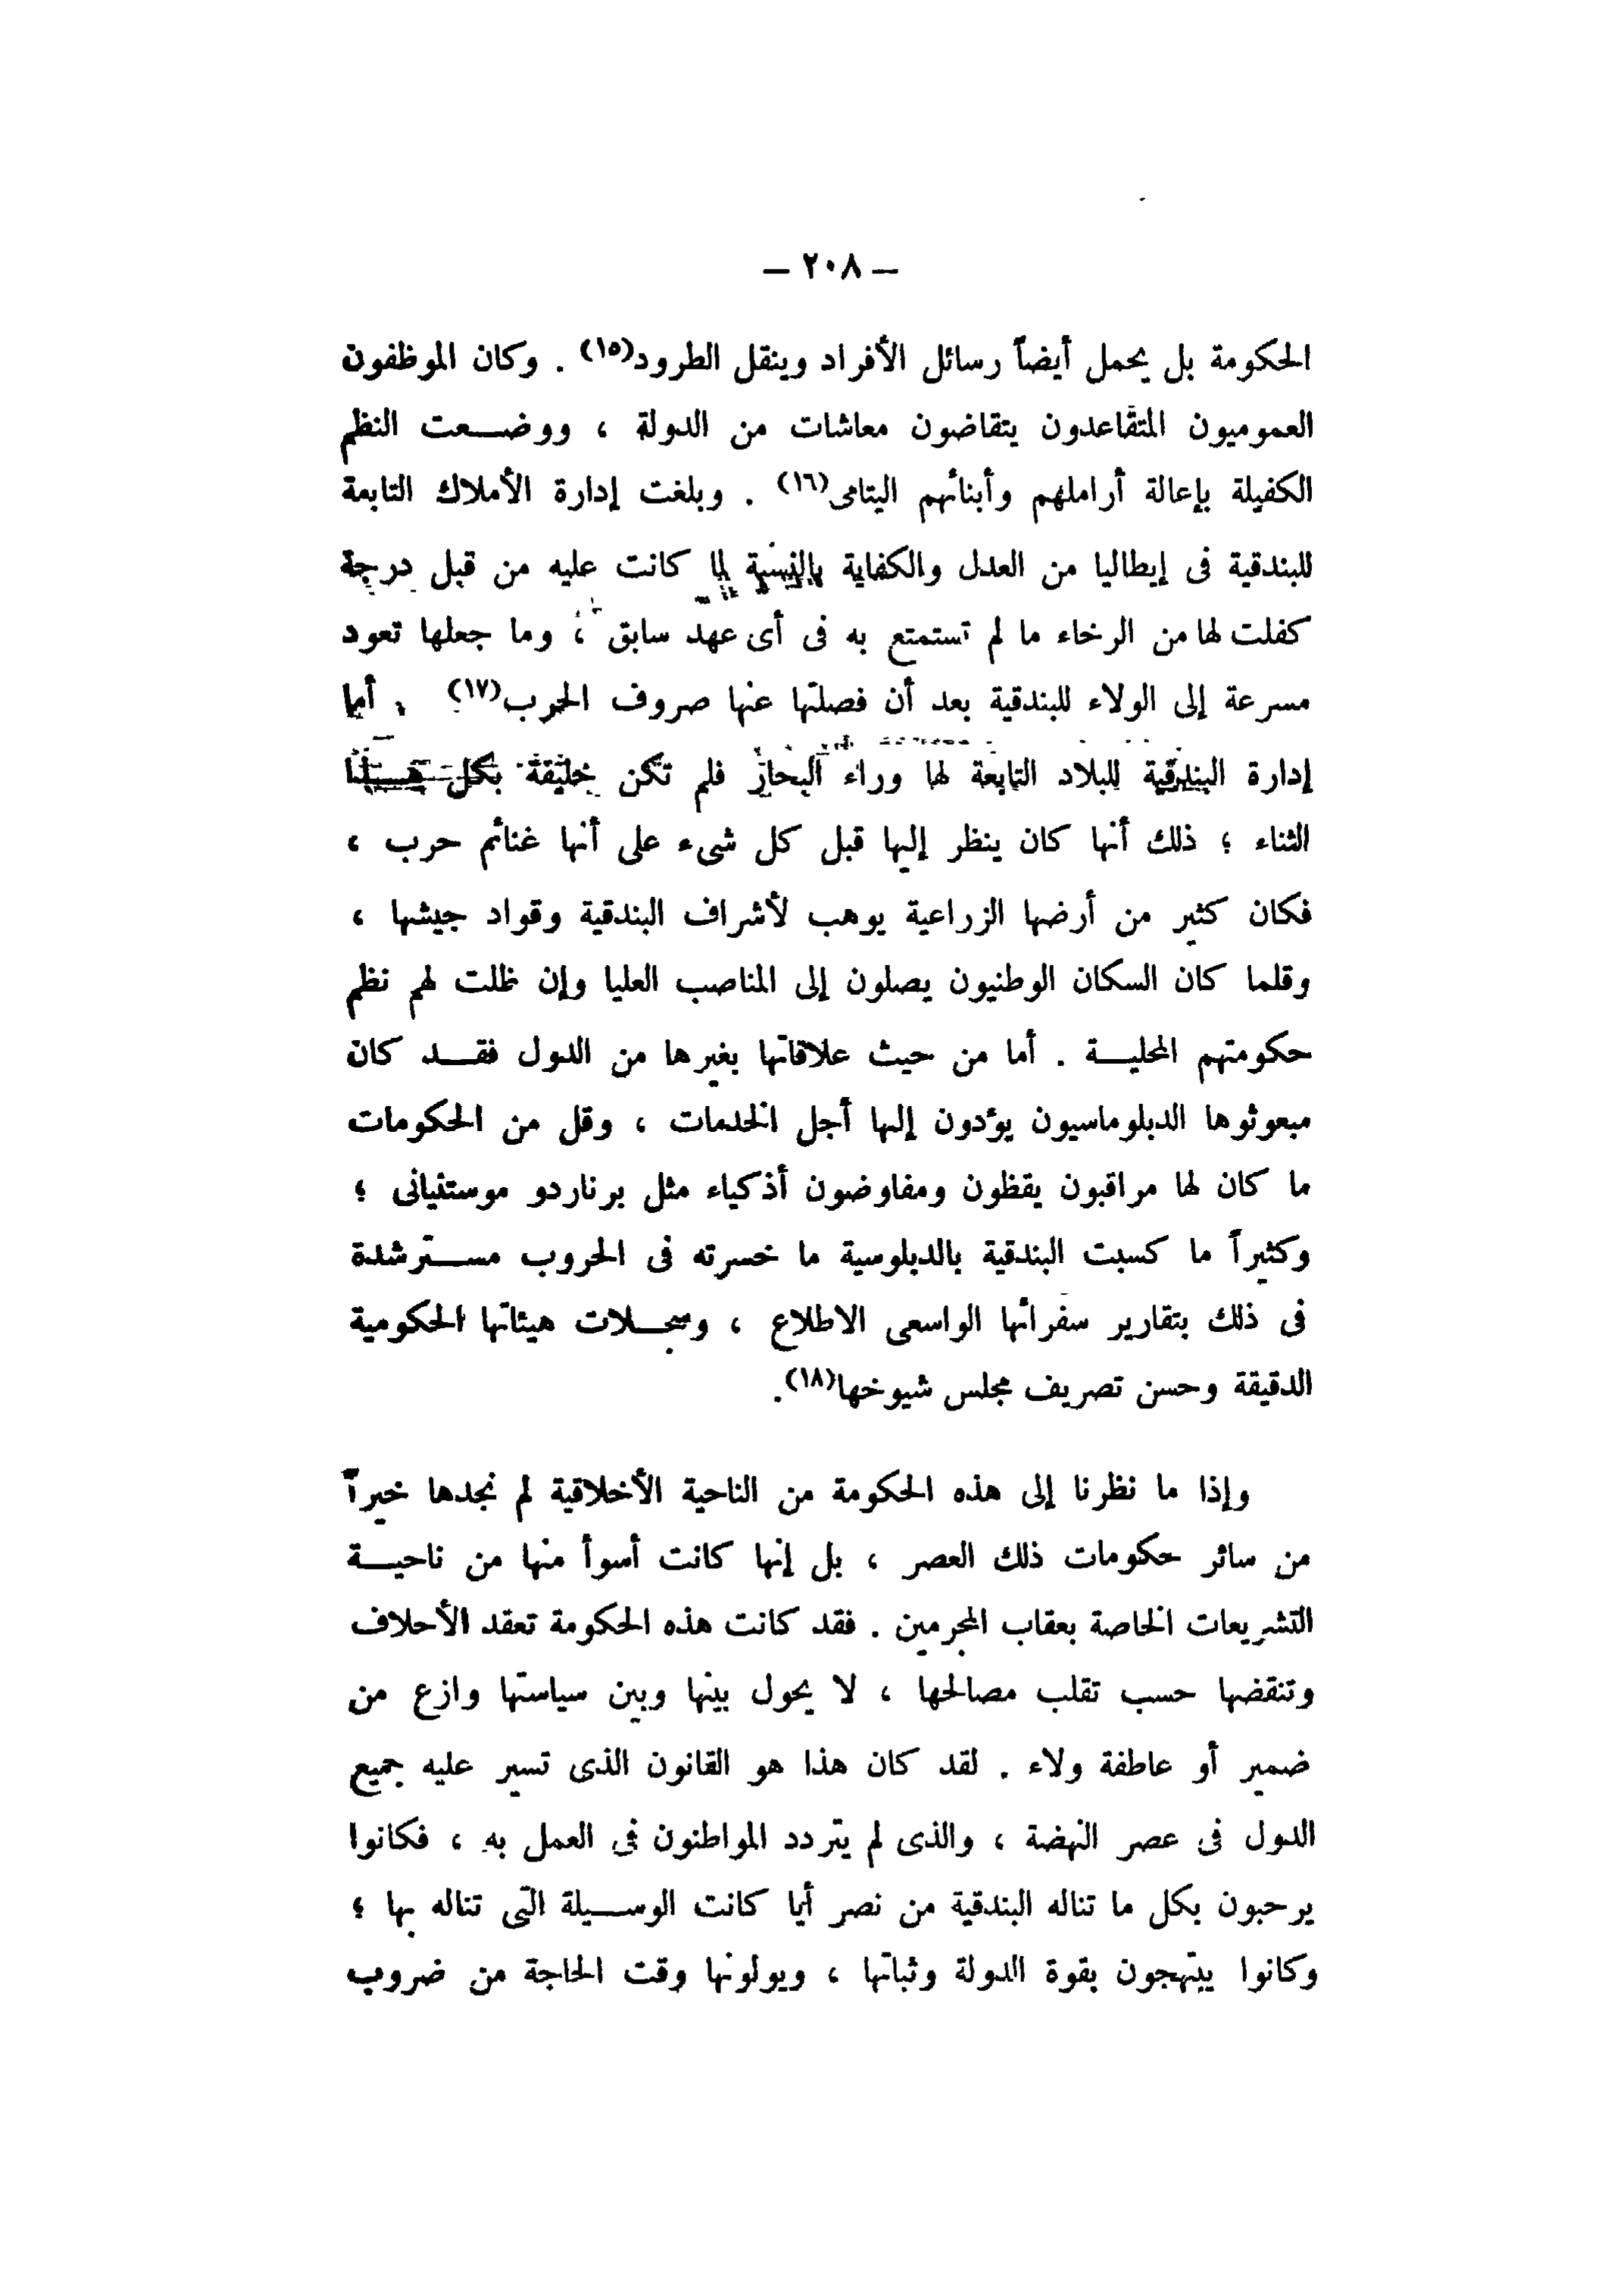 — ٢٠٨ —
الحكومة بل يحمل أيضاً رسائل الأفراد وينقل الطرود(١٥) . وكان الموظفون
العموميون المتقاعدون يتقاضون معاشات من الدولة ، ووضعت النظم
الكفيلة بإعالة أراملهم وأبنائهم اليتامى(١٦) . وبلغت إدارة الأملاك التابعة
للبندقية فى إيطاليا من العدل والكفاية بالنسبة لما كانت عليه من قبل درجة
كفلت لها من الرخاء ما لم تستمتع به فى أى عهد سابق ، وما جعلها تعود
مسرعة إلى الولاء للبندقية بعد أن فصلتها عنها صروف الحرب(١٧) . أما
إدارة البندقية للبلاد التابعة لها وراء البحار فلم تكن خليقة بكل هذا
الثناء ؛ ذلك أنها كان ينظر إليها قبل كل شىء على أنها غنائم حرب ،
فكان كثير من أرضها الزراعية يوهب لأشراف البندقية وقواد جيشها ،
وقلما كان السكان الوطنيون يصلون إلى المناصب العليا وإن ظلت لهم نظم
حكومتهم المحلية . أما من حيث علاقاتها بغيرها من الدول فقد كان
مبعوثوها الدبلوماسيون يؤدون إليها أجل الخدمات ، وقل من الحكومات
ما كان لها مراقبون يقظون ومفاوضون أذكياء مثل برناردو موستنيانى ؛
وكثيراً ما كسبت البندقية بالدبلوسية ما خسرته فى الحروب مسترشدة
فى ذلك بتقارير سفرائها الواسعى الاطلاع ، وسجلات هيئاتها الحكومية
الدقيقة وحسن تصريف مجلس شيوخها(١٨).
وإذا ما نظرنا إلى هذه الحكومة من الناحية الأخلاقية لم نجدها خيراً
من سائر حكومات ذلك العصر ، بل إنها كانت أسوأ منها من ناحية
التشريعات الخاصة بعقاب المجرمين . فقد كانت هذه الحكومة تعقد الأحلاف
وتنقضها حسب تقلب مصالحها ، لا يحول بينها وبين سياستها وازع من
ضمير أو عاطفة ولاء . لقد كان هذا هو القانون الذى تسير عليه جميع
الدول فى عصر النهضة ، والذى لم يتردد المواطنون فى العمل به ، فكانوا
يرحبون بكل ما تناله البندقية من نصر أيا كانت الوسيلة التى تناله بها ؛
وكانوا يبتهجون بقوة الدولة وثباتها ، ويولونها وقت الحاجة من ضروب